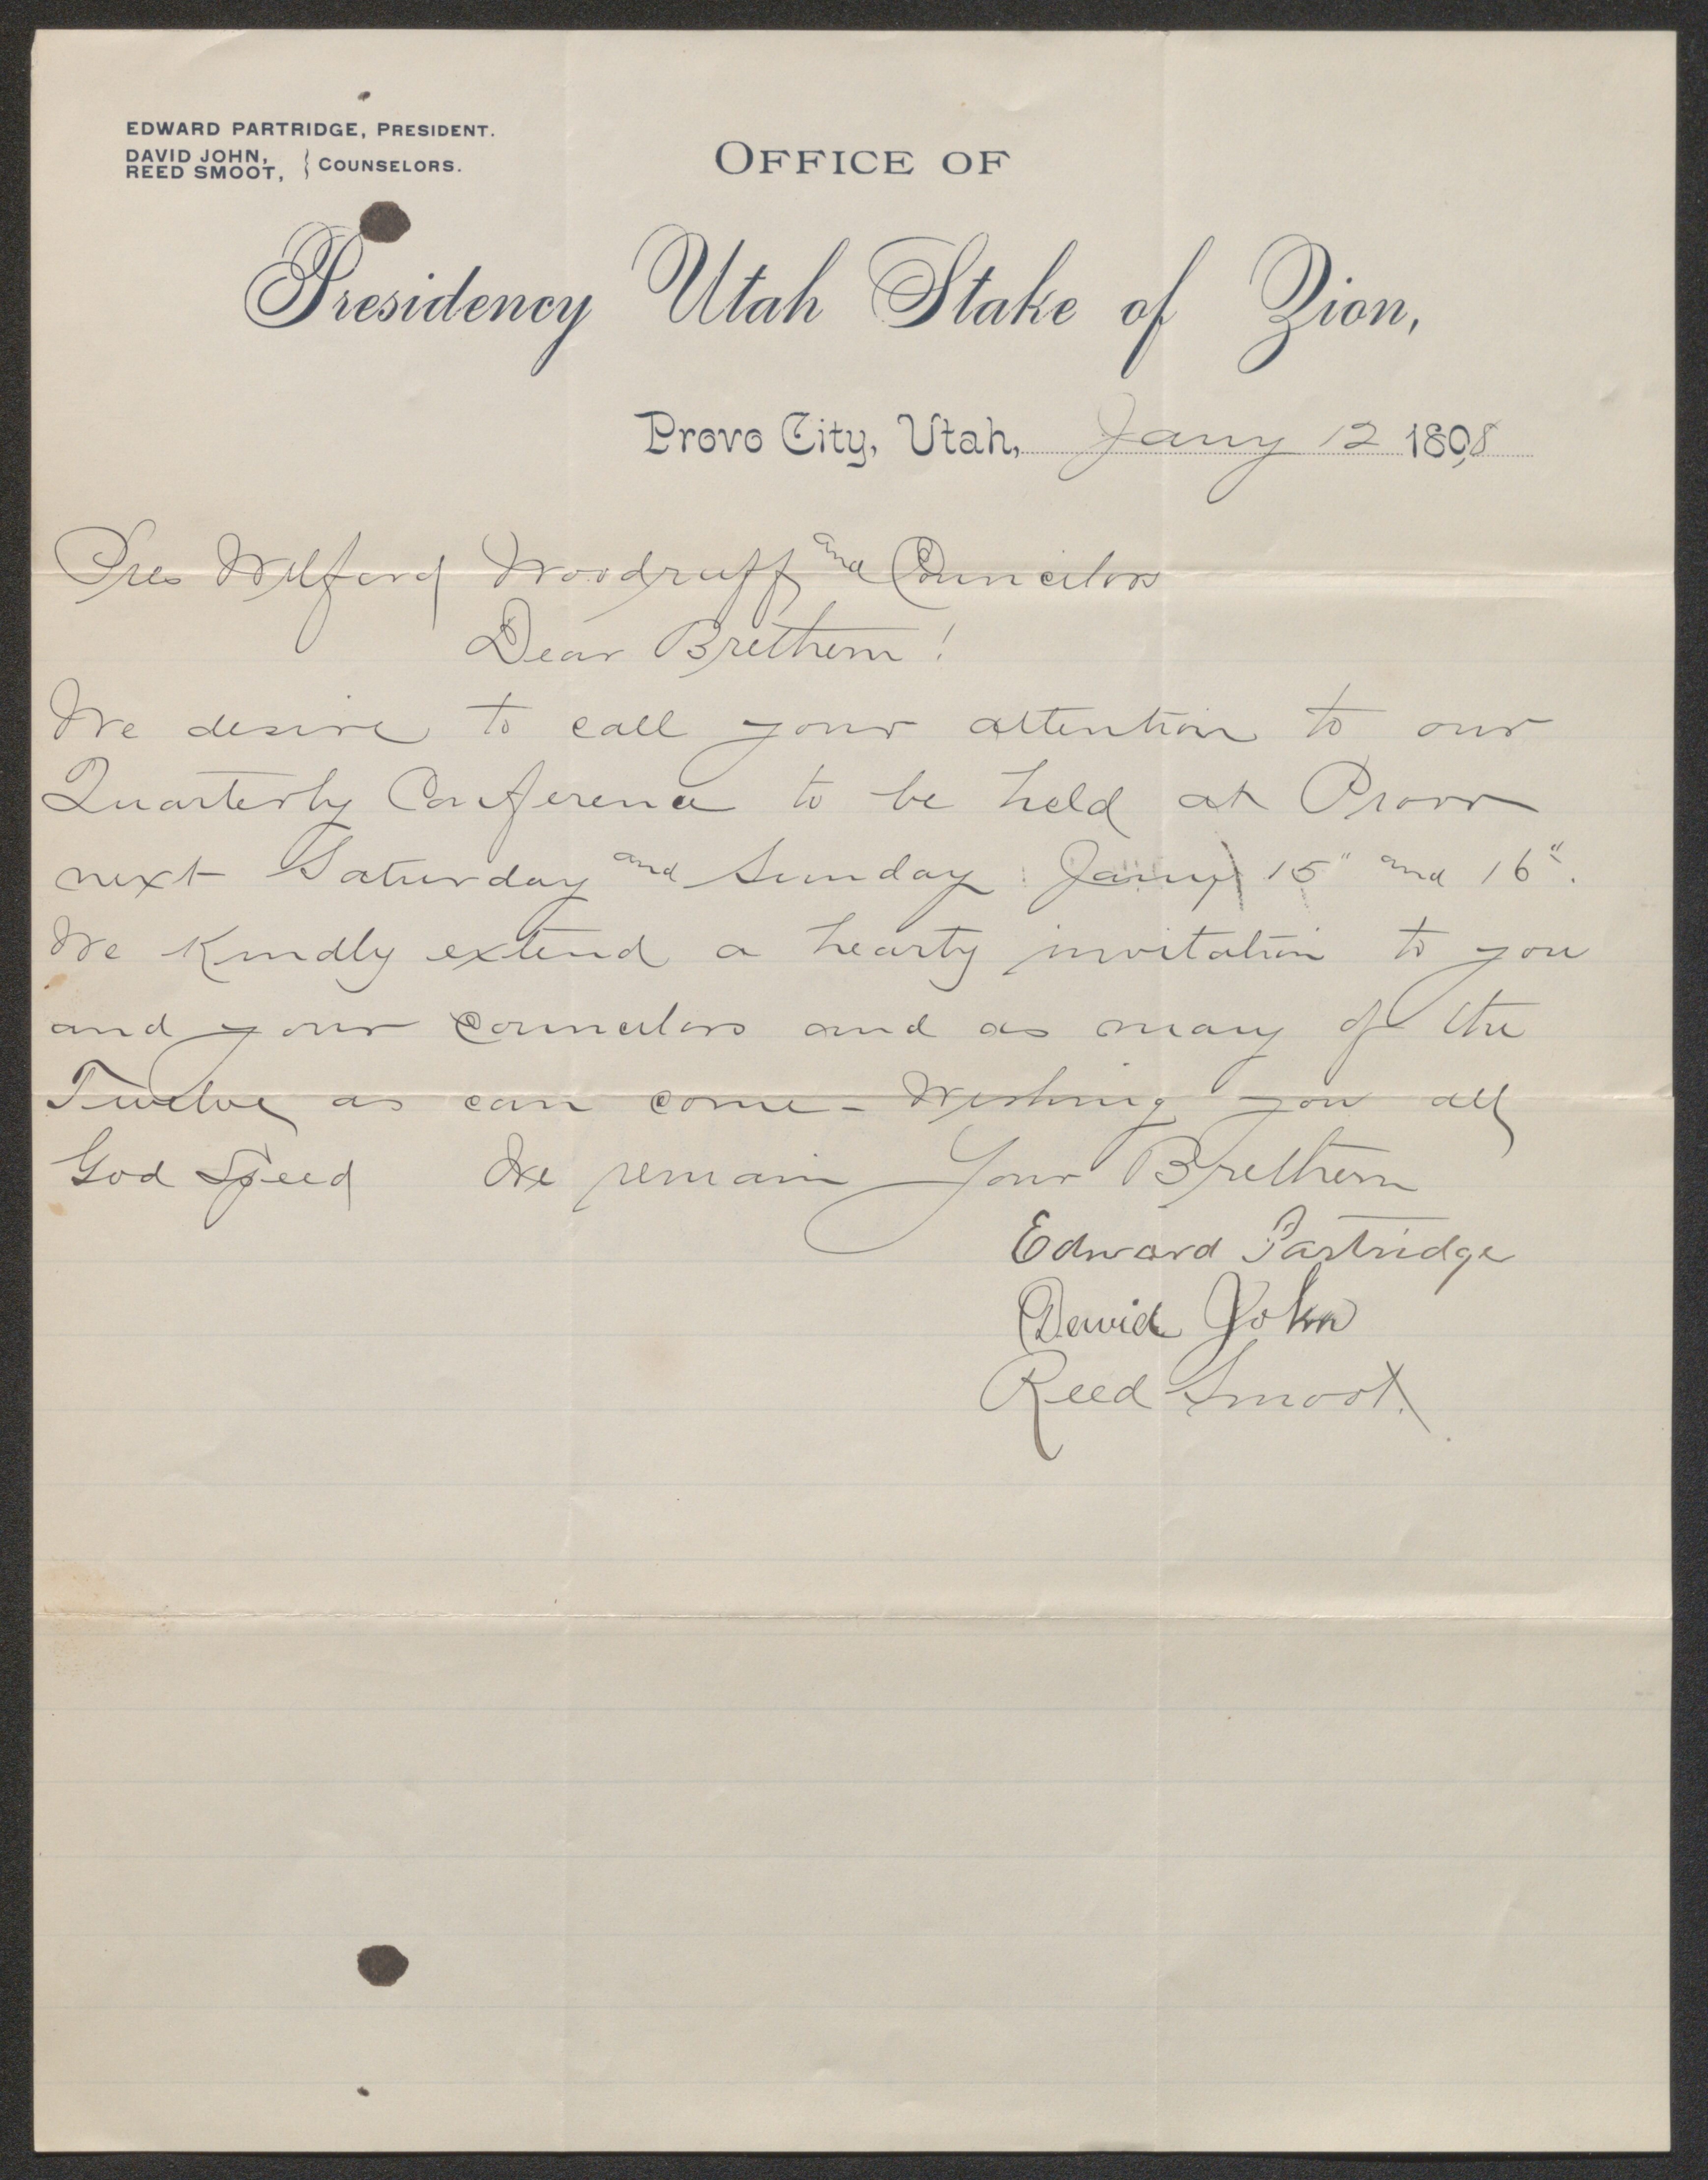 EDWARD PARTRIDGE, PRESIDENT.
DAVID JOHN,
REED SMOOT, } COUNSELORS.
OFFICE OF
Presidency Utah Stake of Zion,
Provo City, Utah, Jany 12 1898
Pres Wilford Woodruff and Councilors
Dear Brethern!
We desire to call your attention to our
Quarterly Conference to be held at Provo
next Saturday and Sunday Jany 15" and 16".
We Kindly extend a hearty invitation to you
and your Councilors and as many of the
Twelve as can come - Wishing you all
God Speed We remain Your Brethern
Edward Partridge
David John
Reed Smoot.